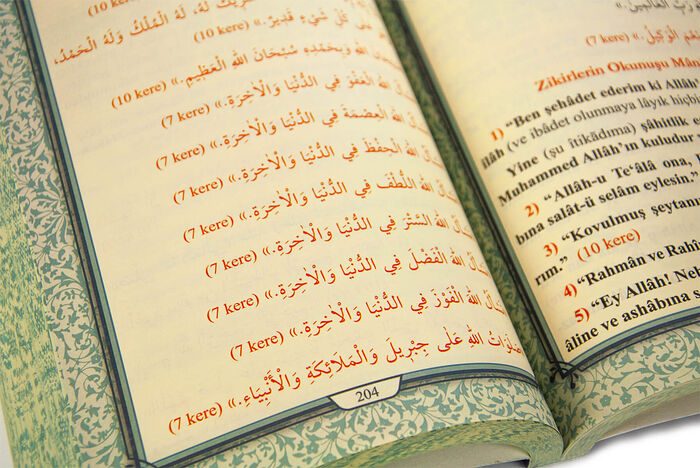 شَرِيكَ لَهُ، لَهُ الْمُلْكُ وَلَهُ الْحَمْدُ،
(10 kere)
كُلِّ شَيْءٍ قَدِيرٌ.» (10 kere)
اللهِ وَبِحَمْدِهِ سُبْحَانَ اللهِ الْعَظِيمِ.» (10 kere)
اللهَ الْعَفْوَ فِي الدُّنْيَا وَالْاٰخِرَةِ.» (7 kere)
اللهَ الْعِصْمَةَ فِي الدُّنْيَا وَالْاٰخِرَةِ.» (7 kere)
اللهَ الْحِفْظَ فِي الدُّنْيَا وَالْاٰخِرَةِ.» (7 kere)
اللهَ اللُّطْفَ فِي الدُّنْيَا وَالْاٰخِرَةِ.» (7 kere)
اللهَ السَّتْرَ فِي الدُّنْيَا وَالْاٰخِرَةِ.» (7 kere)
اللهَ الْفَضْلَ فِي الدُّنْيَا وَالْاٰخِرَةِ.» (7 kere)
اللهَ الْفَوْزَ فِي الدُّنْيَا وَالْاٰخِرَةِ.» (7 kere)
صَلَوَاتُ اللهِ عَلَى جِبْرِيلَ وَالْمَلَائِكَةِ وَالْأَنْبِيَاءِ.» (7 kere)
204
الْعَالَمِينَ.
الْوَكِيلُ.» (7 kere)
Zikirlerin Okunuşu
1) “Ben şehâdet ederim ki Allâh
(ve ibâdet olunmaya lâyık hiçbir
Yine (şu îtikādıma) şâhitlik
Muhammed Allâh'ın kuludur
2) “Allâh-u Te'âlâ ona,
bına salât-ü selâm eylesin.”
3) “Kovulmuş şeytanın
rım.” (10 kere)
4) “Rahmân ve
5) “Ey Allâh!
âline ve ashâbına